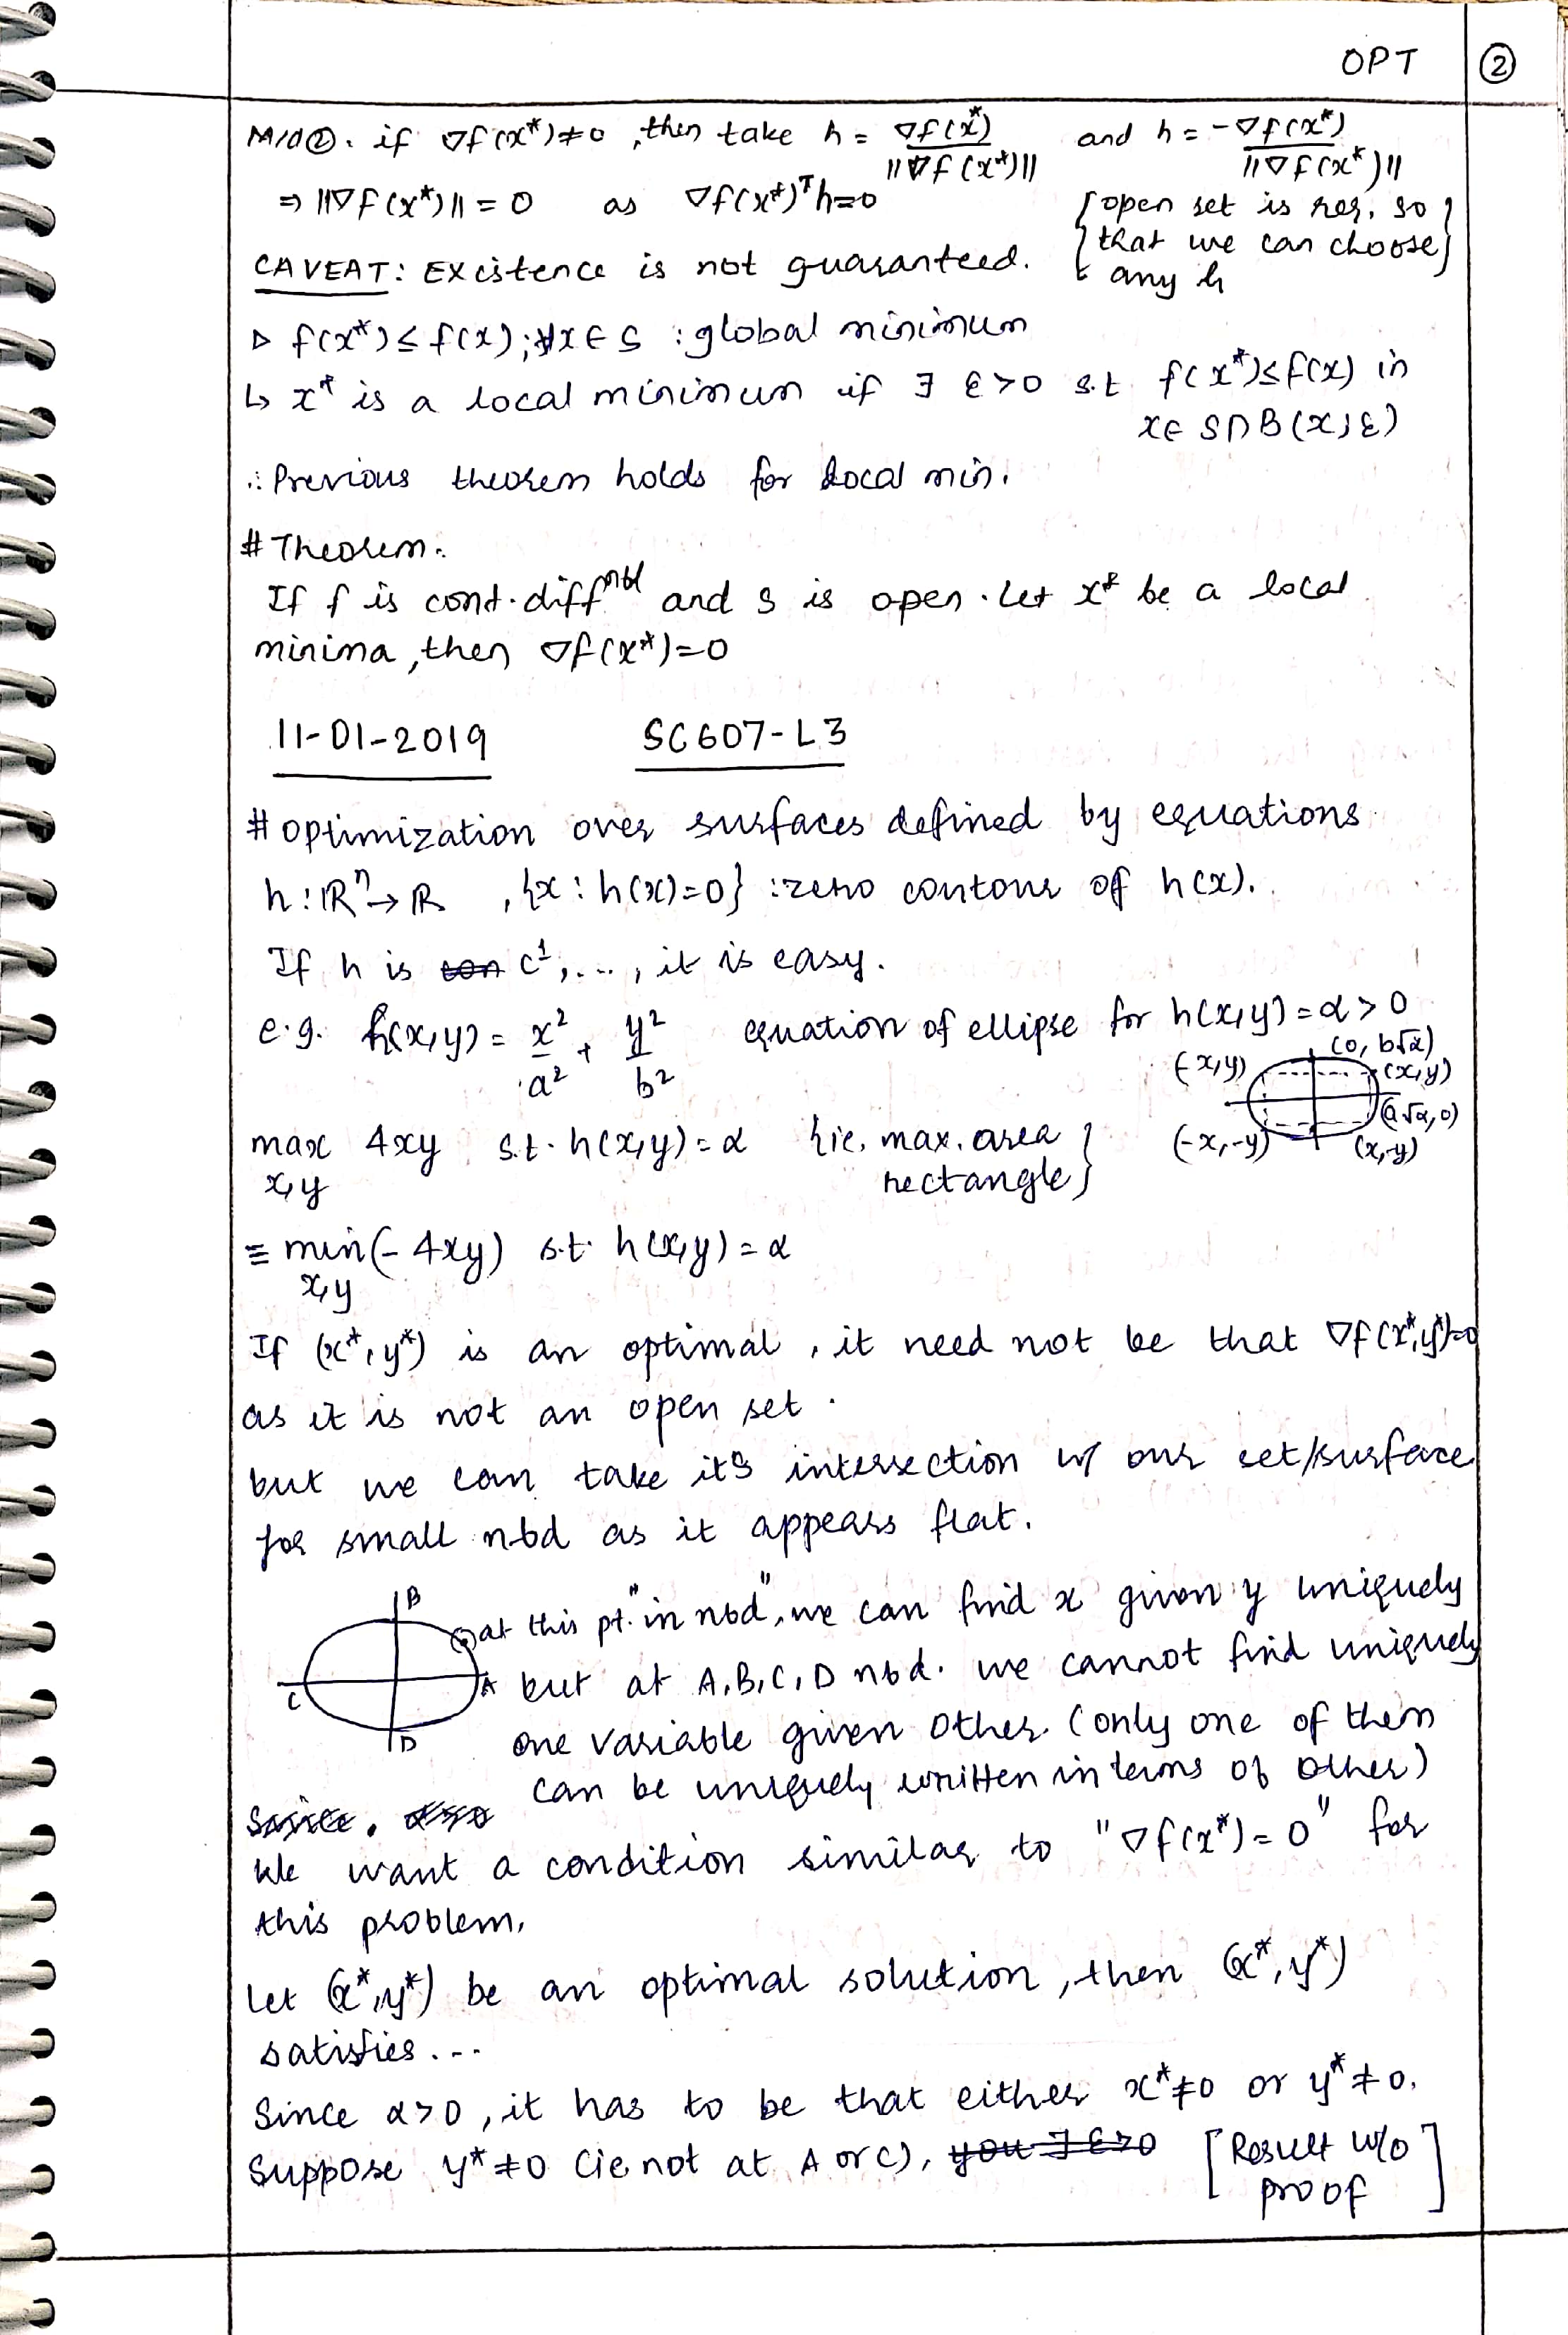 OPT ②
M/d②. if ∇f(x*)≠0, then take h = ∇f(x*)/||∇f(x*)|| and h = -∇f(x*)/||∇f(x*)||
⇒ ||∇f(x*)|| = 0 as ∇f(x*)ᵀh=0 {open set is req. so that we can choose any h}
CAVEAT: Existence is not guaranteed.
▷ f(x*)≤f(x); ∀x∈S : global minimum
↳ x* is a local minimum if ∃ ε>0 s.t. f(x*)≤f(x) in
x∈ S∩B(x,ε)
∴ Previous theorem holds for local min.
# Theorem.
If f is cont. diffⁿᵇˡ and S is open. Let x* be a local
minima, then ∇f(x*)=0
11-01-2019 SC607-L3
# Optimization over surfaces defined by equations
h: ℝⁿ→ℝ, {x : h(x)=0} : zero contour of h(x).
If h is C¹,..., it is easy.
e.g. h(x,y) = x²/a² + y²/b² equation of ellipse for h(x,y)=α>0
(0, b√α)
(-x,y) (x,y)
(a√α,0)
(-x,-y) (x,-y)
max 4xy s.t. h(x,y)=α {ie, max. area rectangle}
x,y
≡ min(-4xy) s.t. h(x,y)=α
x,y
If (x*,y*) is an optimal, it need not be that ∇f(x*,y*)=0
as it is not an open set.
but we can take it's intersection w/ our set/surface
for small nbd as it appears flat.
B
A
C
D
at this pt. "in nbd", we can find x given y uniquely
but at A,B,C,D nbd. we cannot find uniquely
one variable given other. (only one of them
can be uniquely written in terms of other)
We want a condition similar to "∇f(x*)=0" for
this problem.
Let (x*,y*) be an optimal solution, then (x*,y*)
satisfies...
Since α>0, it has to be that either x*≠0 or y*≠0.
Suppose y*≠0 (ie not at A or C), you ∃ ε>0 [Result w/o proof]